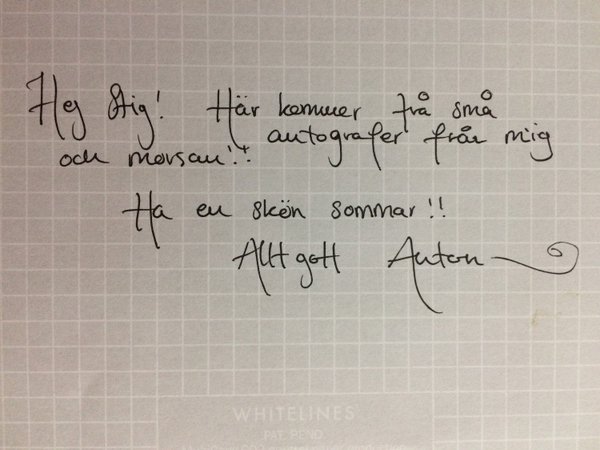 Hej Stig! Här kommer två små
autografer från mig
och morsan!!
Ha en skön sommar!!
Allt gott Anton
WHITELINES
PAT. PEND